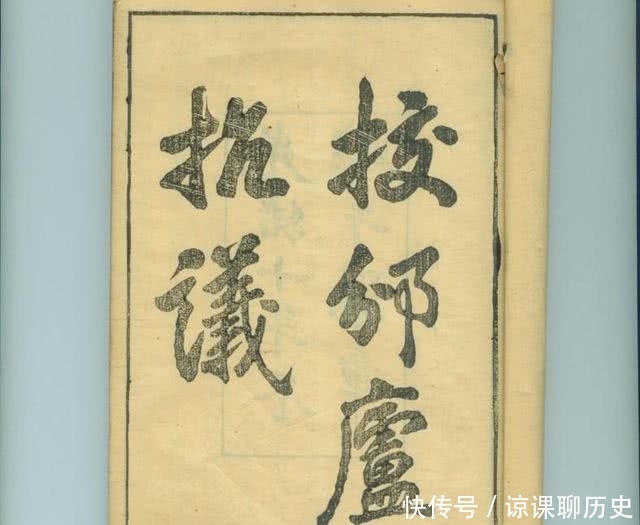 校邠廬
抗議
快传号/谅课聊历史